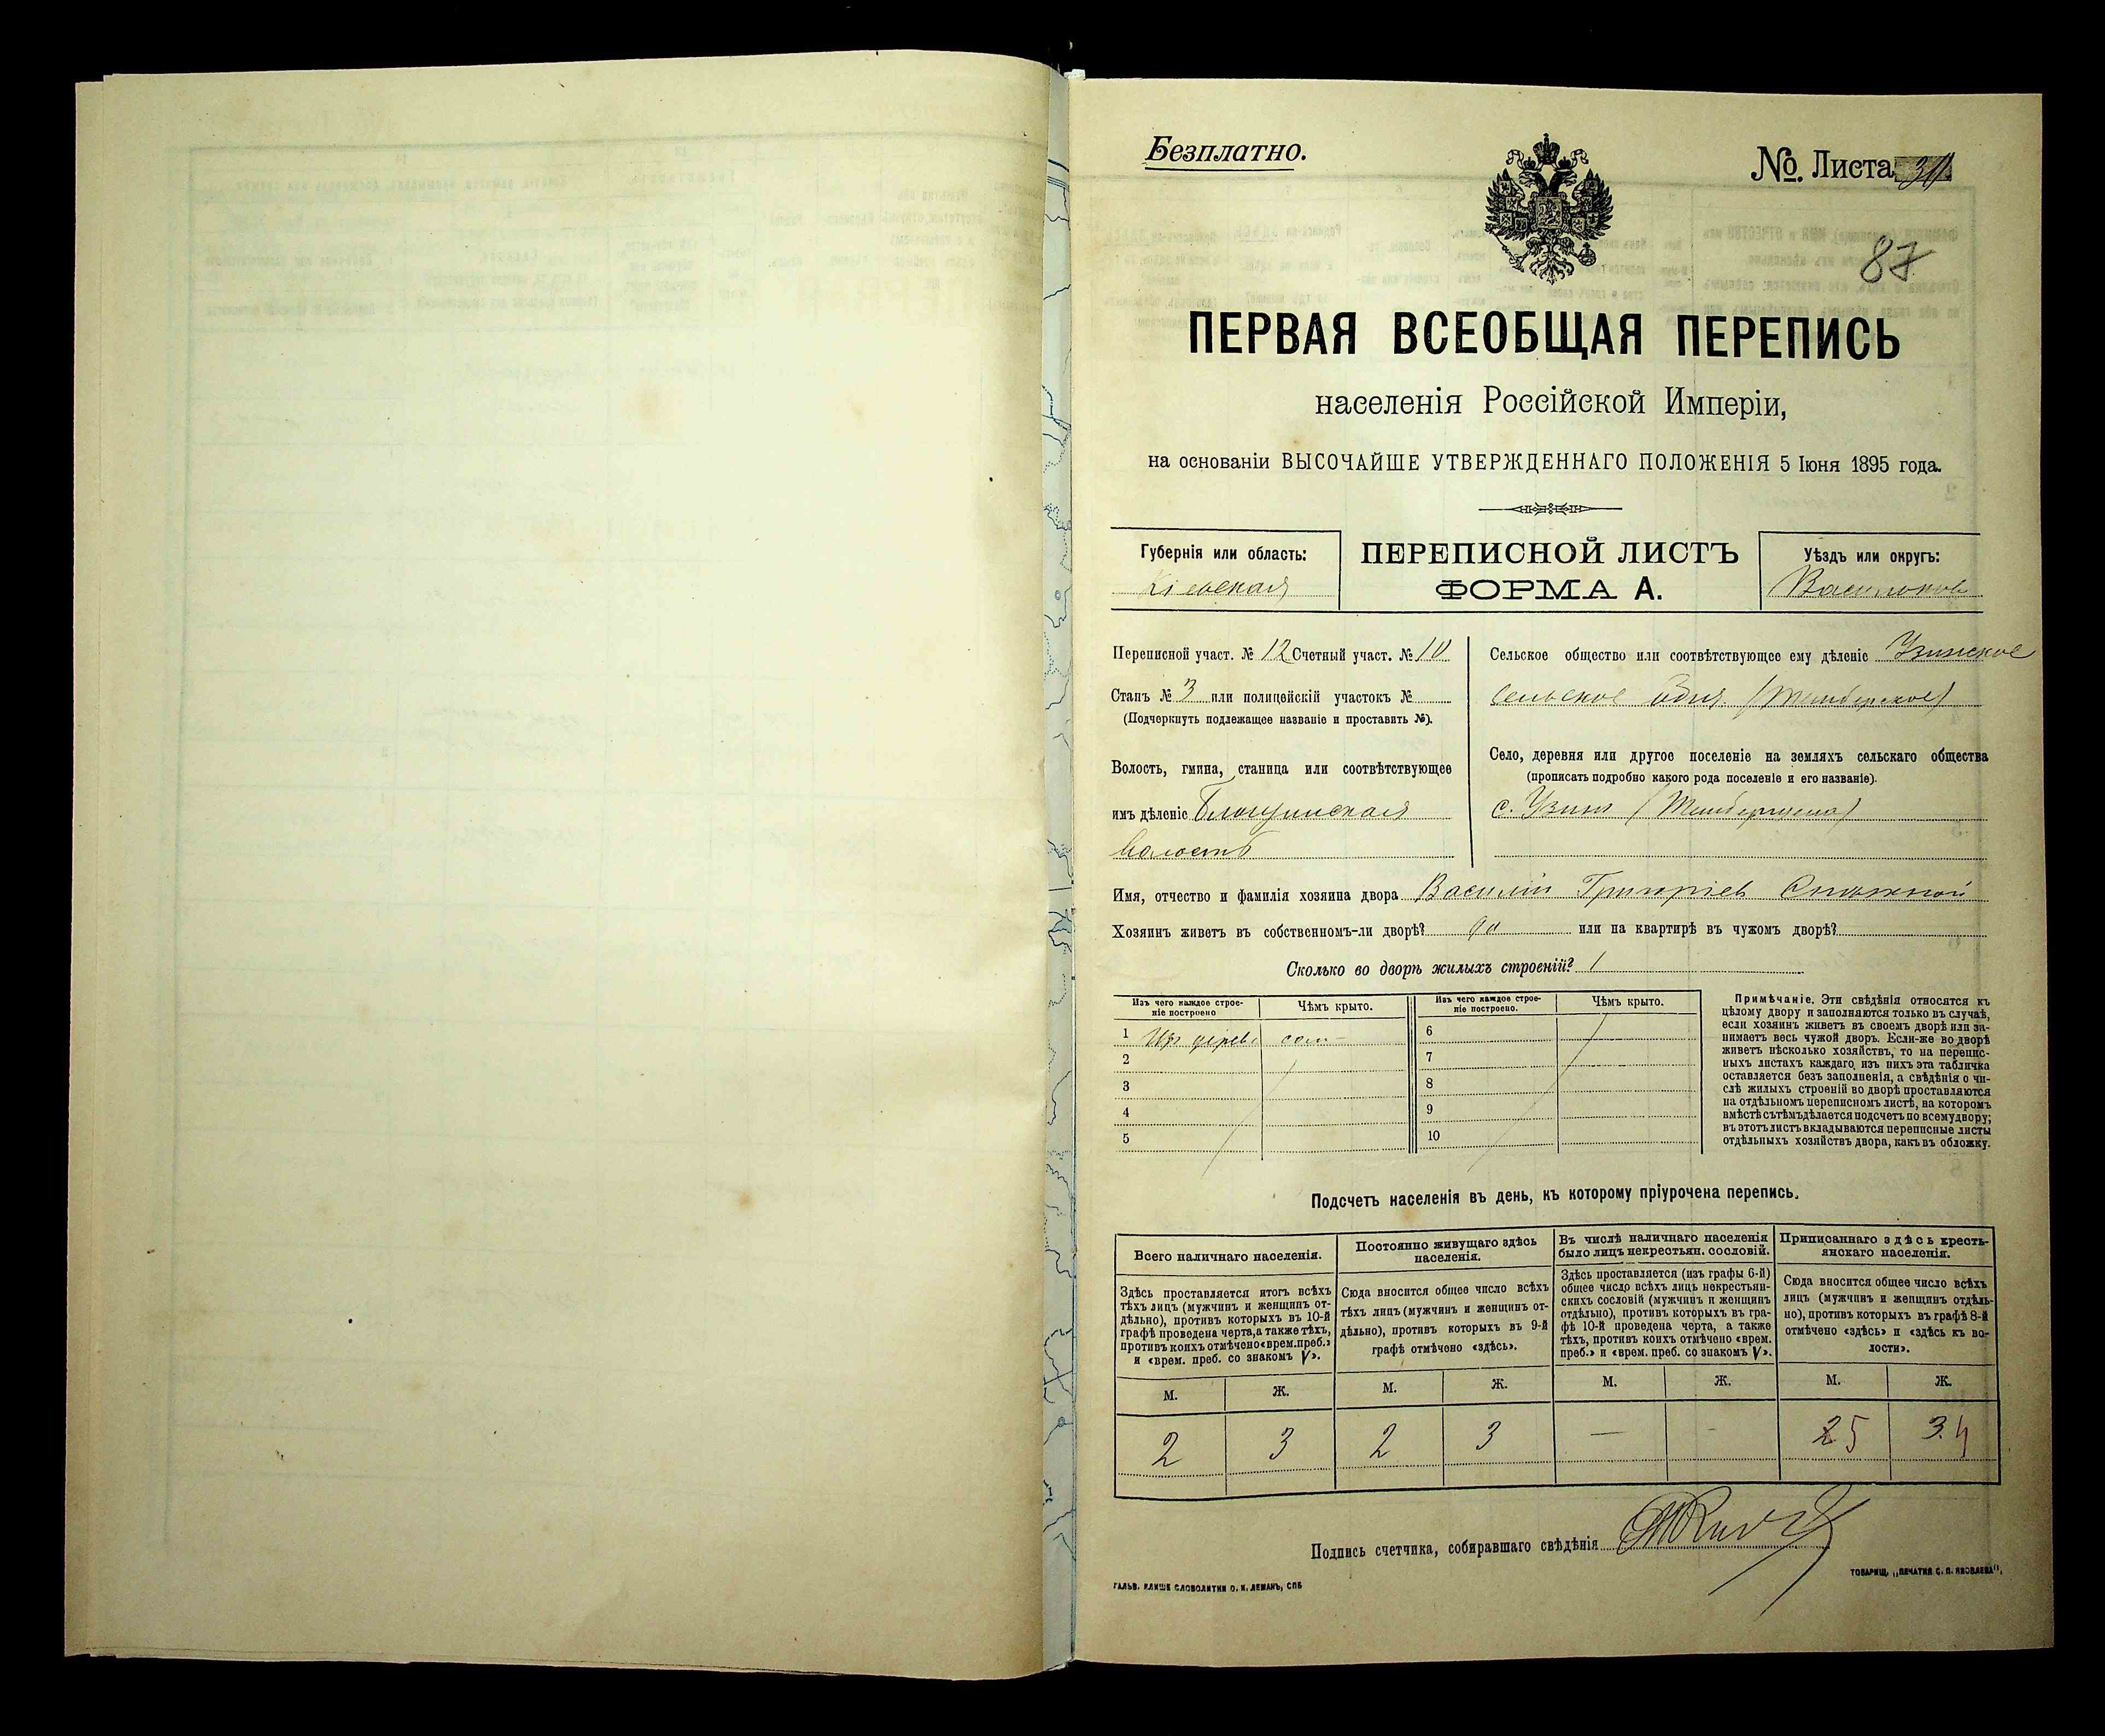 Безплатно.
№. Листа 30
87
ПЕРВАЯ ВСЕОБЩАЯ ПЕРЕПИСЬ
населенія Россійской Имперіи,
на основаніи ВЫСОЧАЙШЕ УТВЕРЖДЕННАГО ПОЛОЖЕНІЯ 5 Іюня 1895 года.
Губернія или область:
Кіевская
ПЕРЕПИСНОЙ ЛИСТЪ
ФОРМА А.
Уѣздъ или округъ:
Васильков
Переписной участ. № 12 Счетный участ. № 10
Станъ № 3 или полицейскій участокъ №
(Подчеркнуть подлежащее названіе и проставить №).
Волость, гмина, станица или соотвѣтствующее
имъ дѣленіе
волость
Сельское общество или соотвѣтствующее ему дѣленіе Узинское
сельское
Село, деревня или другое поселеніе на земляхъ сельскаго общества
(прописать подробно какого рода поселеніе и его названіе).
с. Узин
Имя, отчество и фамилія хозяина двора Василій Григоріев
Хозяинъ живетъ въ собственномъ-ли дворѣ? да или на квартирѣ въ чужомъ дворѣ?
Сколько во дворѣ жилыхъ строеній? 1
Изъ чего каждое строе-
ніе построено
Чѣмъ крыто.
Изъ чего каждое строе-
ніе построено.
Чѣмъ крыто.
1 Из дерев. сол
2
3
4
5
6
7
8
9
10
Примѣчаніе. Эти свѣдѣнія относятся къ
цѣлому двору и заполняются только въ случаѣ,
если хозяинъ живетъ въ своемъ дворѣ или за-
нимаетъ весь чужой дворъ. Если-же во дворѣ
живетъ нѣсколько хозяйствъ, то на перепис-
ныхъ листахъ каждаго изъ нихъ эта табличка
оставляется безъ заполненія, а свѣдѣнія о чи-
слѣ жилыхъ строеній во дворѣ проставляются
на отдѣльномъ переписномъ листѣ, на которомъ
вмѣстѣ съ тѣмъ дѣлается подсчетъ по всему двору;
въ этотъ листъ вкладываются переписные листы
отдѣльныхъ хозяйствъ двора, какъ въ обложку.
Подсчетъ населенія въ день, къ которому пріурочена перепись.
Всего наличнаго населенія.
Здѣсь проставляется итогъ всѣхъ
тѣхъ лицъ (мужчинъ и женщинъ от-
дѣльно), противъ которыхъ въ 10-й
графѣ проведена черта, а также тѣхъ,
противъ коихъ отмѣчено «врем. преб.»
и «врем. преб. со знакомъ V».
Постоянно живущаго здѣсь
населенія.
Сюда вносится общее число всѣхъ
тѣхъ лицъ (мужчинъ и женщинъ от-
дѣльно), противъ которыхъ въ 9-й
графѣ отмѣчено «здѣсь».
Въ числѣ наличнаго населенія
было лицъ некрестьян. сословій.
Здѣсь проставляется (изъ графы 6-й)
общее число всѣхъ лицъ некрестьян-
скихъ сословій (мужчинъ и женщинъ
отдѣльно), противъ которыхъ въ гра-
фѣ 10-й проведена черта, а также
тѣхъ, противъ коихъ отмѣчено «врем.
преб.» и «врем. преб. со знакомъ V».
Приписаннаго здѣсь кресть-
янскаго населенія.
Сюда вносится общее число всѣхъ
лицъ (мужчинъ и женщинъ отдѣль-
но), противъ которыхъ въ графѣ 8-й
отмѣчено «здѣсь» и «здѣсь къ во-
лости».
М. Ж. М. Ж. М. Ж. М. Ж.
2 3 2 3 — - 2 5 3. 4
Подпись счетчика, собиравшаго свѣдѣнія
ГАЛЬВ. КЛИШЕ СЛОВОЛИТНИ О. И. ЛЕМАНЪ, СПБ
ТОВАРИЩ. „ПЕЧАТНЯ С. П. ЯКОВЛЕВА“,